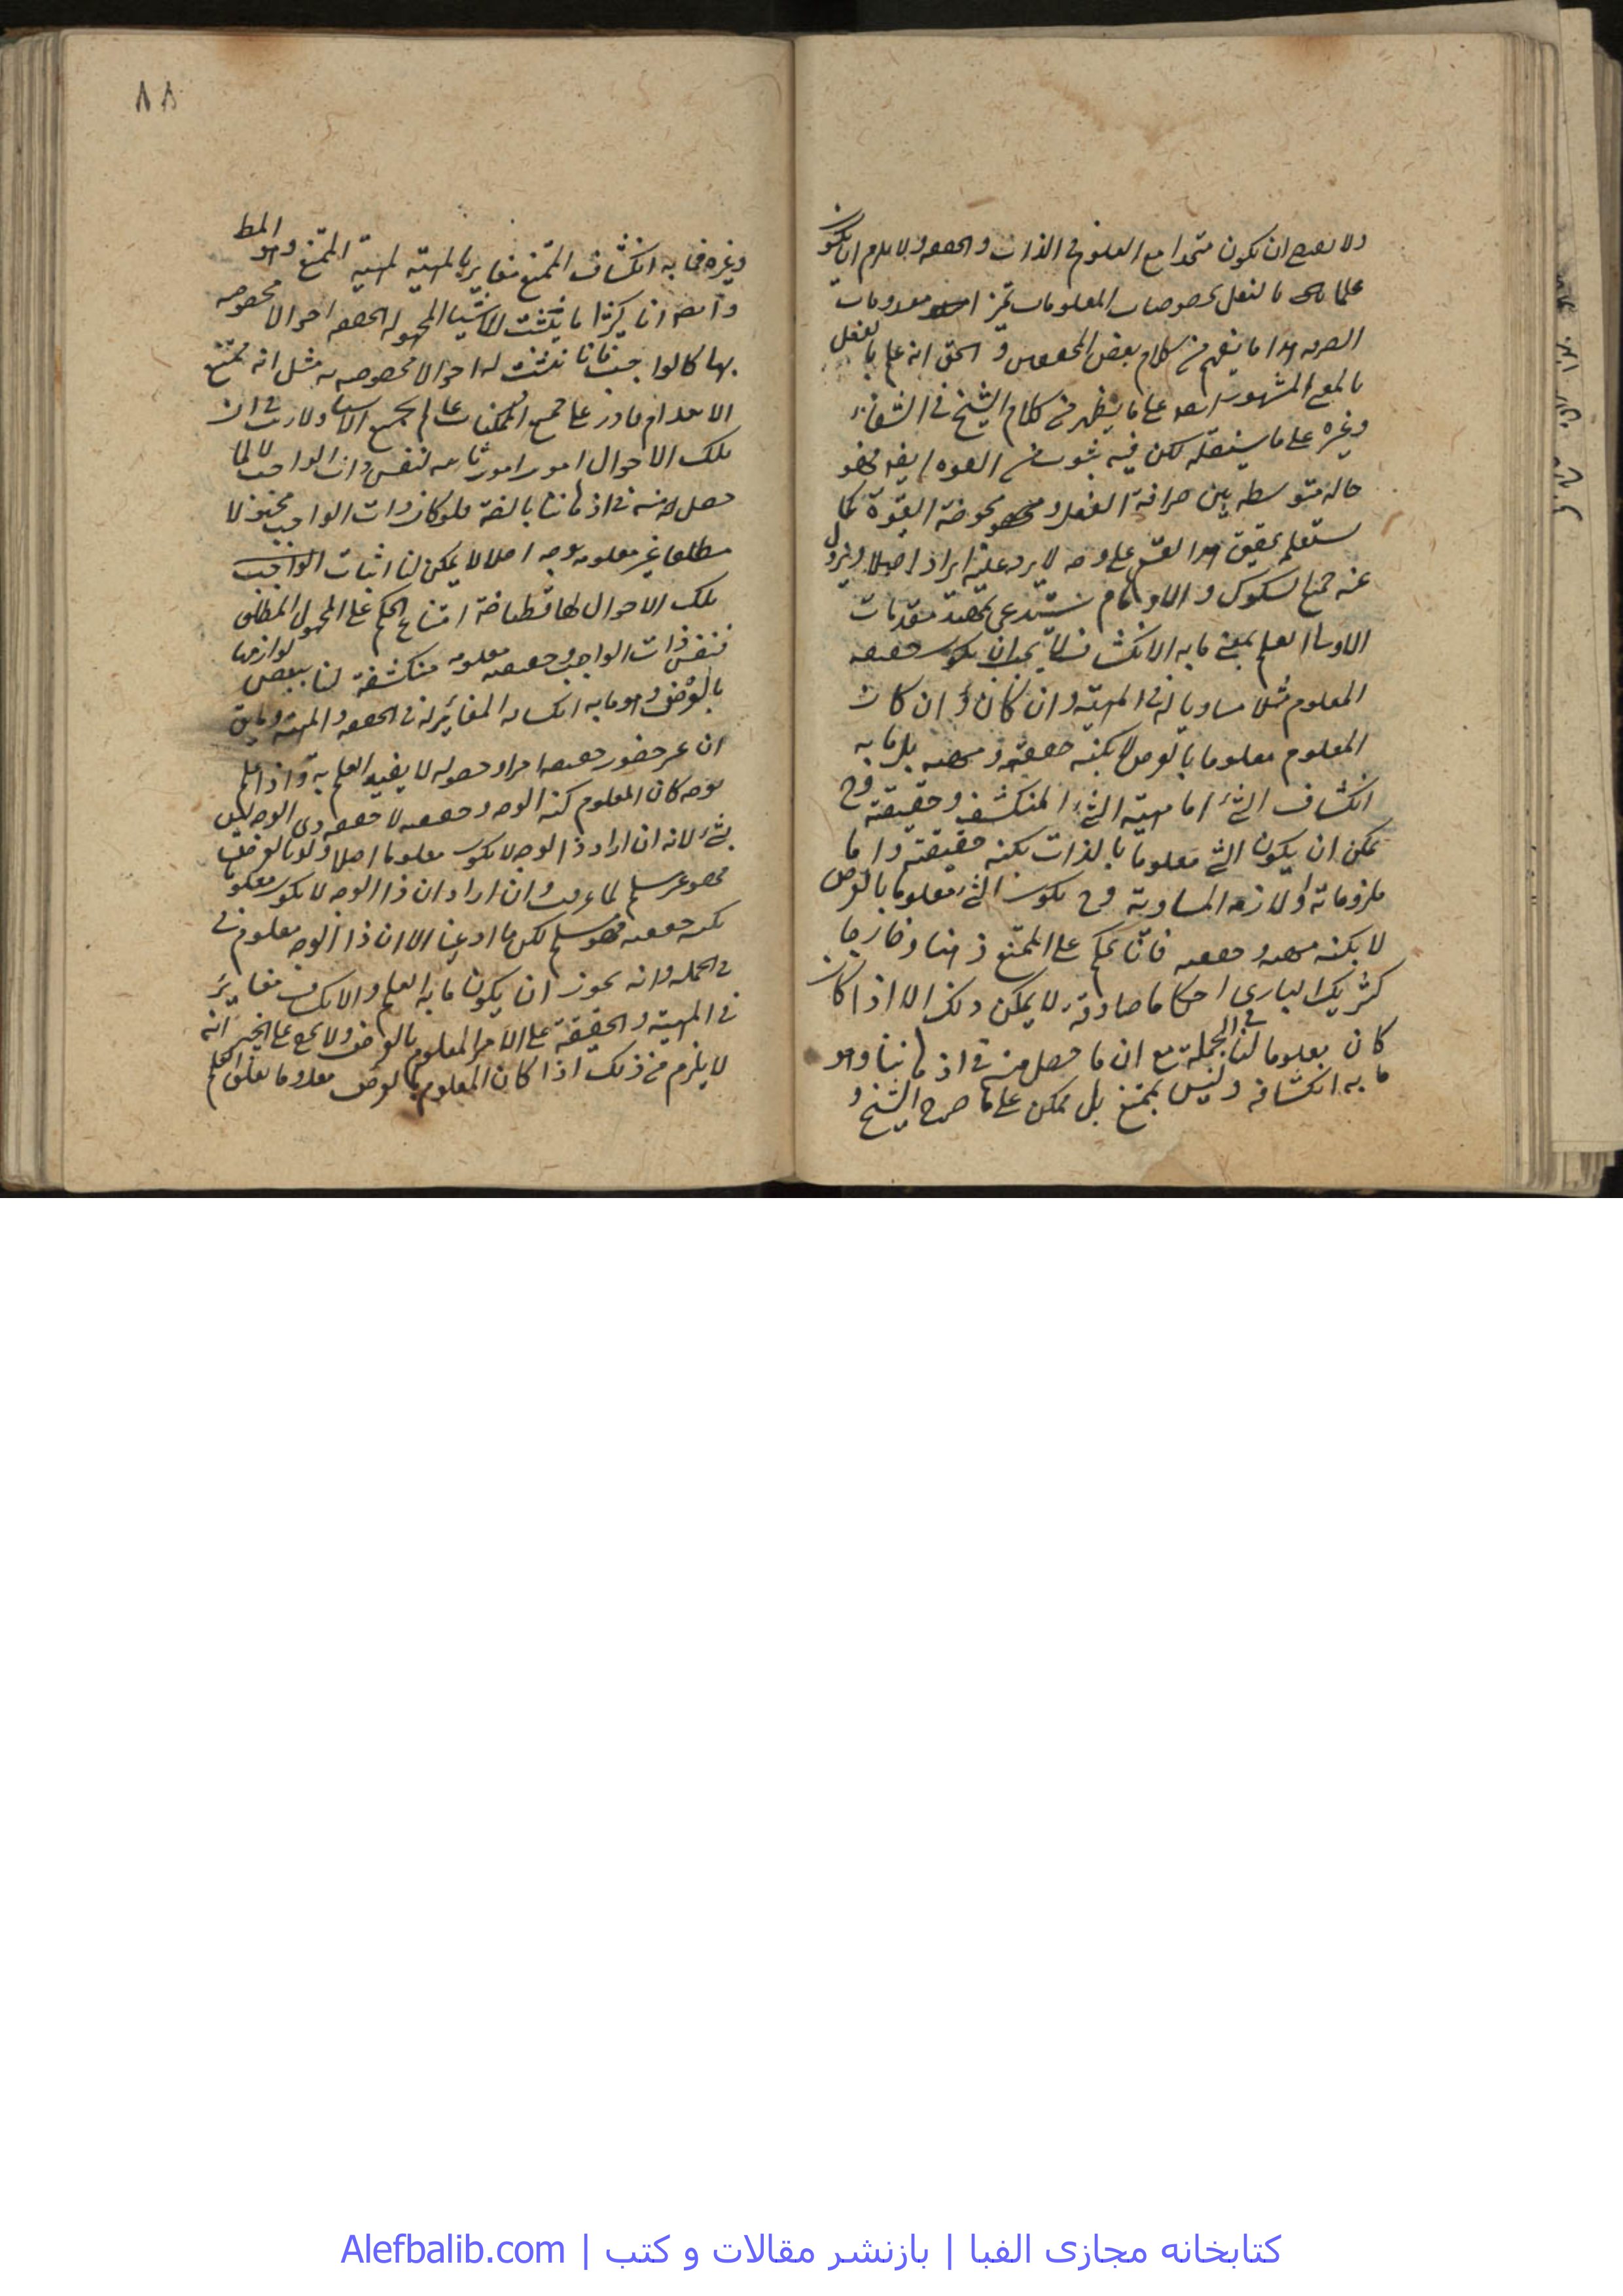 ولا يصح ان يكون متحدا مع المعلوم فى الذات و الحقيقة ولا يلزم ان يكون
علما بالفعل بخصوصيات المعلومات
الصرفة هذا ما يفهم من كلام بعض المحققين و الحق انه علم بالفعل
بالمعنى المشهور ايضا على ما يظهر من كلام الشيخ فى الشفاء
وغيره على ما سينقله لكن فيه شوب من القوة ايضا فهو
حالة متوسطة بين صرافة الفعل و محوضة القوة كما
ستعلم تحقيق هذا القسم على وجه لا يرد عليه ايراد اصلا ويزول
عنه جميع الشكوك و الاوهام يستدعى تمهيد مقدمات
الاولى العلم بمعنى ما به الانكشاف لا يجب ان يكون حقيقة
المعلوم مثلا مساويا له فى المهية و ان كان و ان كان
المعلوم معلوما بالعرض لا بكنه حقيقته و مهيته بل ما به
انكشاف الشئ اما مهية الشئ المنكشف و حقيقته وح
يمكن ان يكون الشئ معلوما بالذات بكنه حقيقته واما
ملزوماته او لازمه المساوية وح يكون الشئ معلوما بالعرض
لا بكنه مهيته و حقيقته فانا نحكم على الممتنع ذهنا وخارجا
كشريك البارى احكاما صادقة لا يمكن ذلك الا اذا كان
كان معلوما لنا فى الجملة مع ان ما حصل منه فى اذهاننا وهو
ما به انكشافه وليس بممتنع بل ممكن على ما صرح الشيخ و
٨٨
وغيره فما به انكشاف الممتنع مغاير بالمهية لمهية الممتنع وهو المط
وايضا انا كثيرا ما نثبت للاشياء المجهولة الحقيقة احوالا مخصوصة
بها كالواجب فانا نثبت له احوالا مخصوصة به مثل انه ممتنع
الانعدام قادر على جميع الممكنات عالم بجميع الاشياء ولا ريب فى ان
تلك الاحوال امور ثابتة لنفس ذات الواجب لا لما
حصل منه فى اذهاننا بالضرة فلو كان ذات الواجب مجهولا
مطلقا غير معلومة بوجه اصلا لا يمكن لنا اثبات
تلك الاحوال لها قطعا ضرة امتناع الحكم على المجهول المطلق
فنفس ذات الواجب وحقيقته معلومة منكشفة لنا ببعض لوازمها
بالعرض و هو ما به انكشافه المغايرة له فى الحقيقة والمهية وما يق
ان غير حضور حقيقة امر او حصوله لا يفيد العلم به واذا علم
بوجه كان المعلوم كنه الوجه و حقيقته لا حقيقة ذى الوجه ليس
بشئ لانه ان اراد ذا الوجه لا يكون معلوما اصلا ولو بالعرض
فهو غير مسلم لما عرفت وان اراد ان ذا الوجه لا يكون معلوما
بكنه حقيقته فهو مسلم لكن ما ادعينا الا ان ذا الوجه معلوم
فى الجملة وانه يجوز ان يكون ما به العلم والانكشاف مغايرا
فى المهية والحقيقة على الامر المعلوم بالعرض ولا يخفى على الخبير انه
لا يلزم من ذلك اذا كان المعلوم بالعرض معدوما تعلق العلم
کتابخانه مجازی الفبا | بازنشر مقالات و کتب | Alefbalib.com